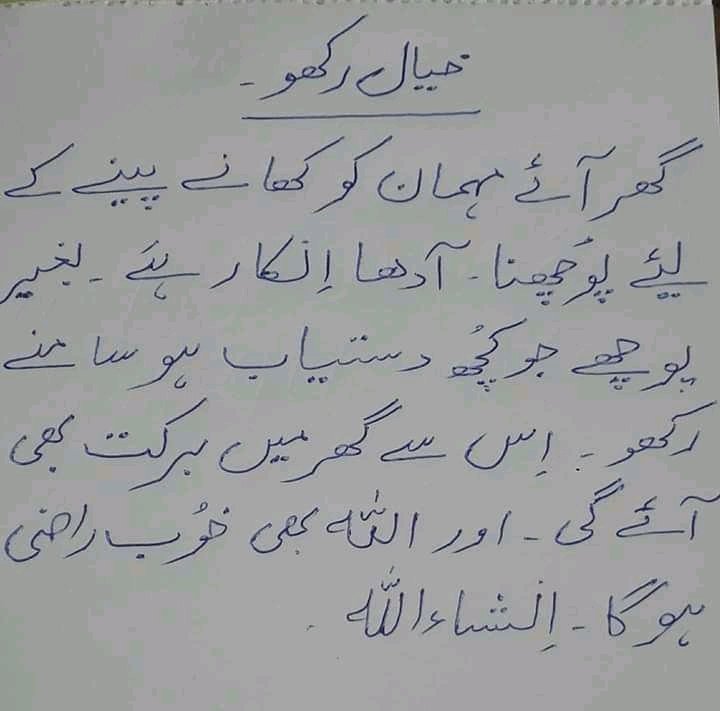 خیال رکھو۔
گھر آئے مہمان کو کھانے پینے کے
لیئے پوُچھنا۔ آدھا اِنکار ہئے۔ بغیر
پوچھے جو کچُھ دستیاب ہو سامنے
رکھو۔ اِس سے گھر میں برکت بھی
آئے گی۔ اور اللّٰہ بھی خوُب راضی
ہو گا۔ اِنشاءاللّٰہ۔